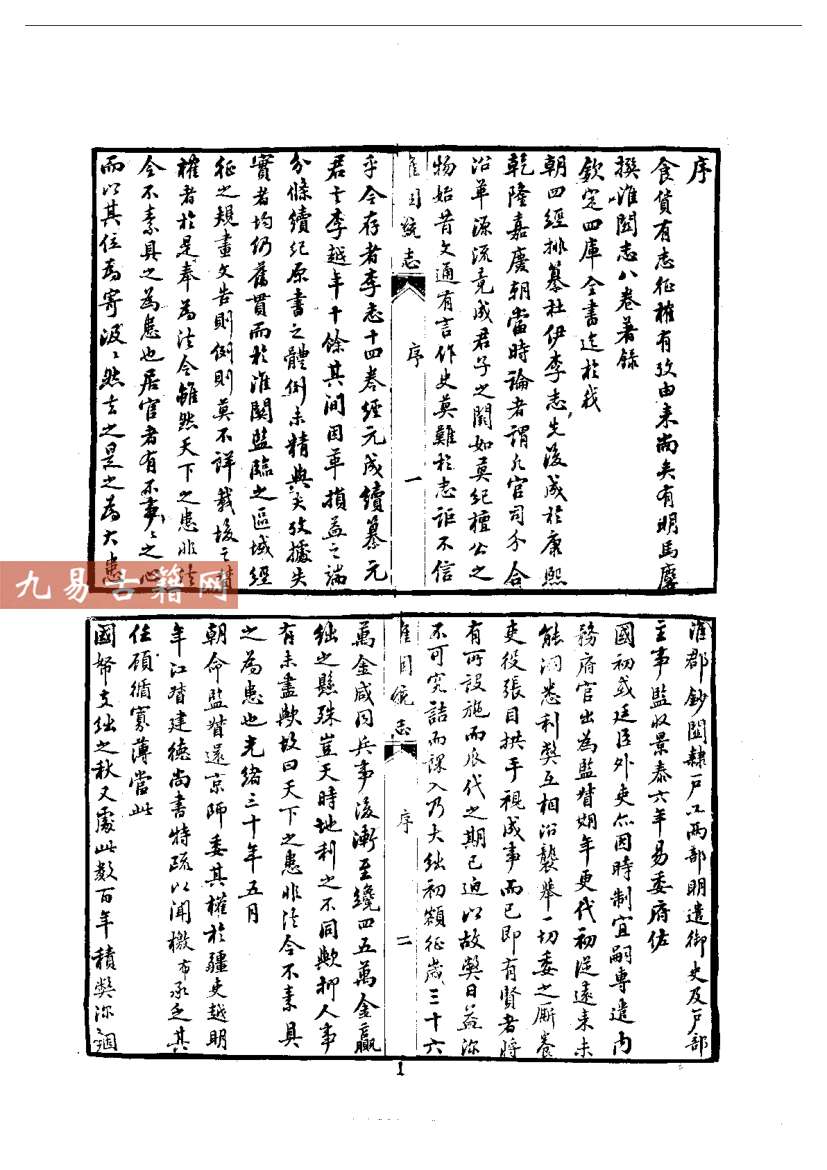 序
食貨有志征榷有攷由来尚矣有明馬麐
撰淮關志八卷著録
欽定四庫全書迄於我
朝四經排纂杜伊李志先後成於康熙
乾隆嘉慶朝當時論者謂凡官司分合
沿革源流竟成君子之闕如莫紀檀公之
物始昔文通有言作史莫難於志詎不信
淮關統志
序
一
乎今存者李志十四卷經元成續纂元
君去李越年十餘其間因革損益之端
分條續纪原書之體例未精典矢攷據失
實者均仍舊貫而於淮關監臨之區域經
征之規畫文告則例則莫不詳裁後之督
榷者於是奉為法令雖然天下之患非法
令不素具之為患也居官者有不事之心
而以其位為寄汲然去之是之為大患
淮郡鈔關隸戸工兩部明遣御史及戸部
主事監收景泰六年易委府佐
國初或廷臣外吏尒因時制宜嗣專遣内
務府官出為監督期年更代初從遠来未
能洞悉利獘互相沿襲舉一切委之厮養
吏役張目拱手視成事而已即有賢者將
有所設施而瓜代之期已迫以故獘日益滋
不可究詰而課入乃大絀初額征歲三十六
淮關統志
序
二
萬金咸同兵事後漸至纔四五萬金贏
絀之懸殊豈天時地利之不同歟抑人事
有未盡歟故曰天下之患非法令不素具
之為患也光緒三十年五月
朝命監督還京師委其權於疆吏越明
年江督建德尚書特疏以聞檄布承乏其
任碩循寡薄當此
國帑支絀之秋又處此數百年積獘深錮
1
九易古籍网